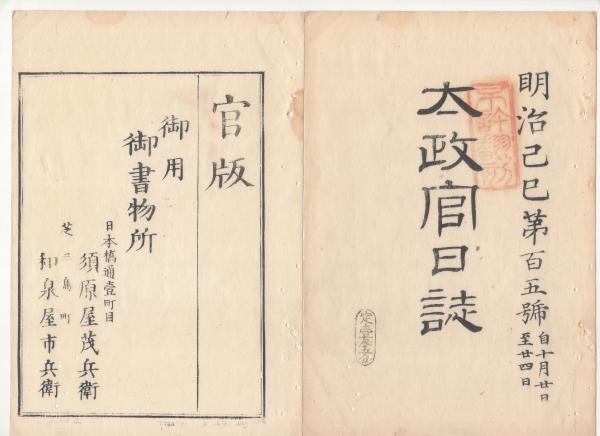 明治己巳第百五號
自十月廿日
至廿四日
太政官日誌
官版
御用
御書物所
日本橋通壹町目
須原屋茂兵衛
芝三島町
和泉屋市兵衛